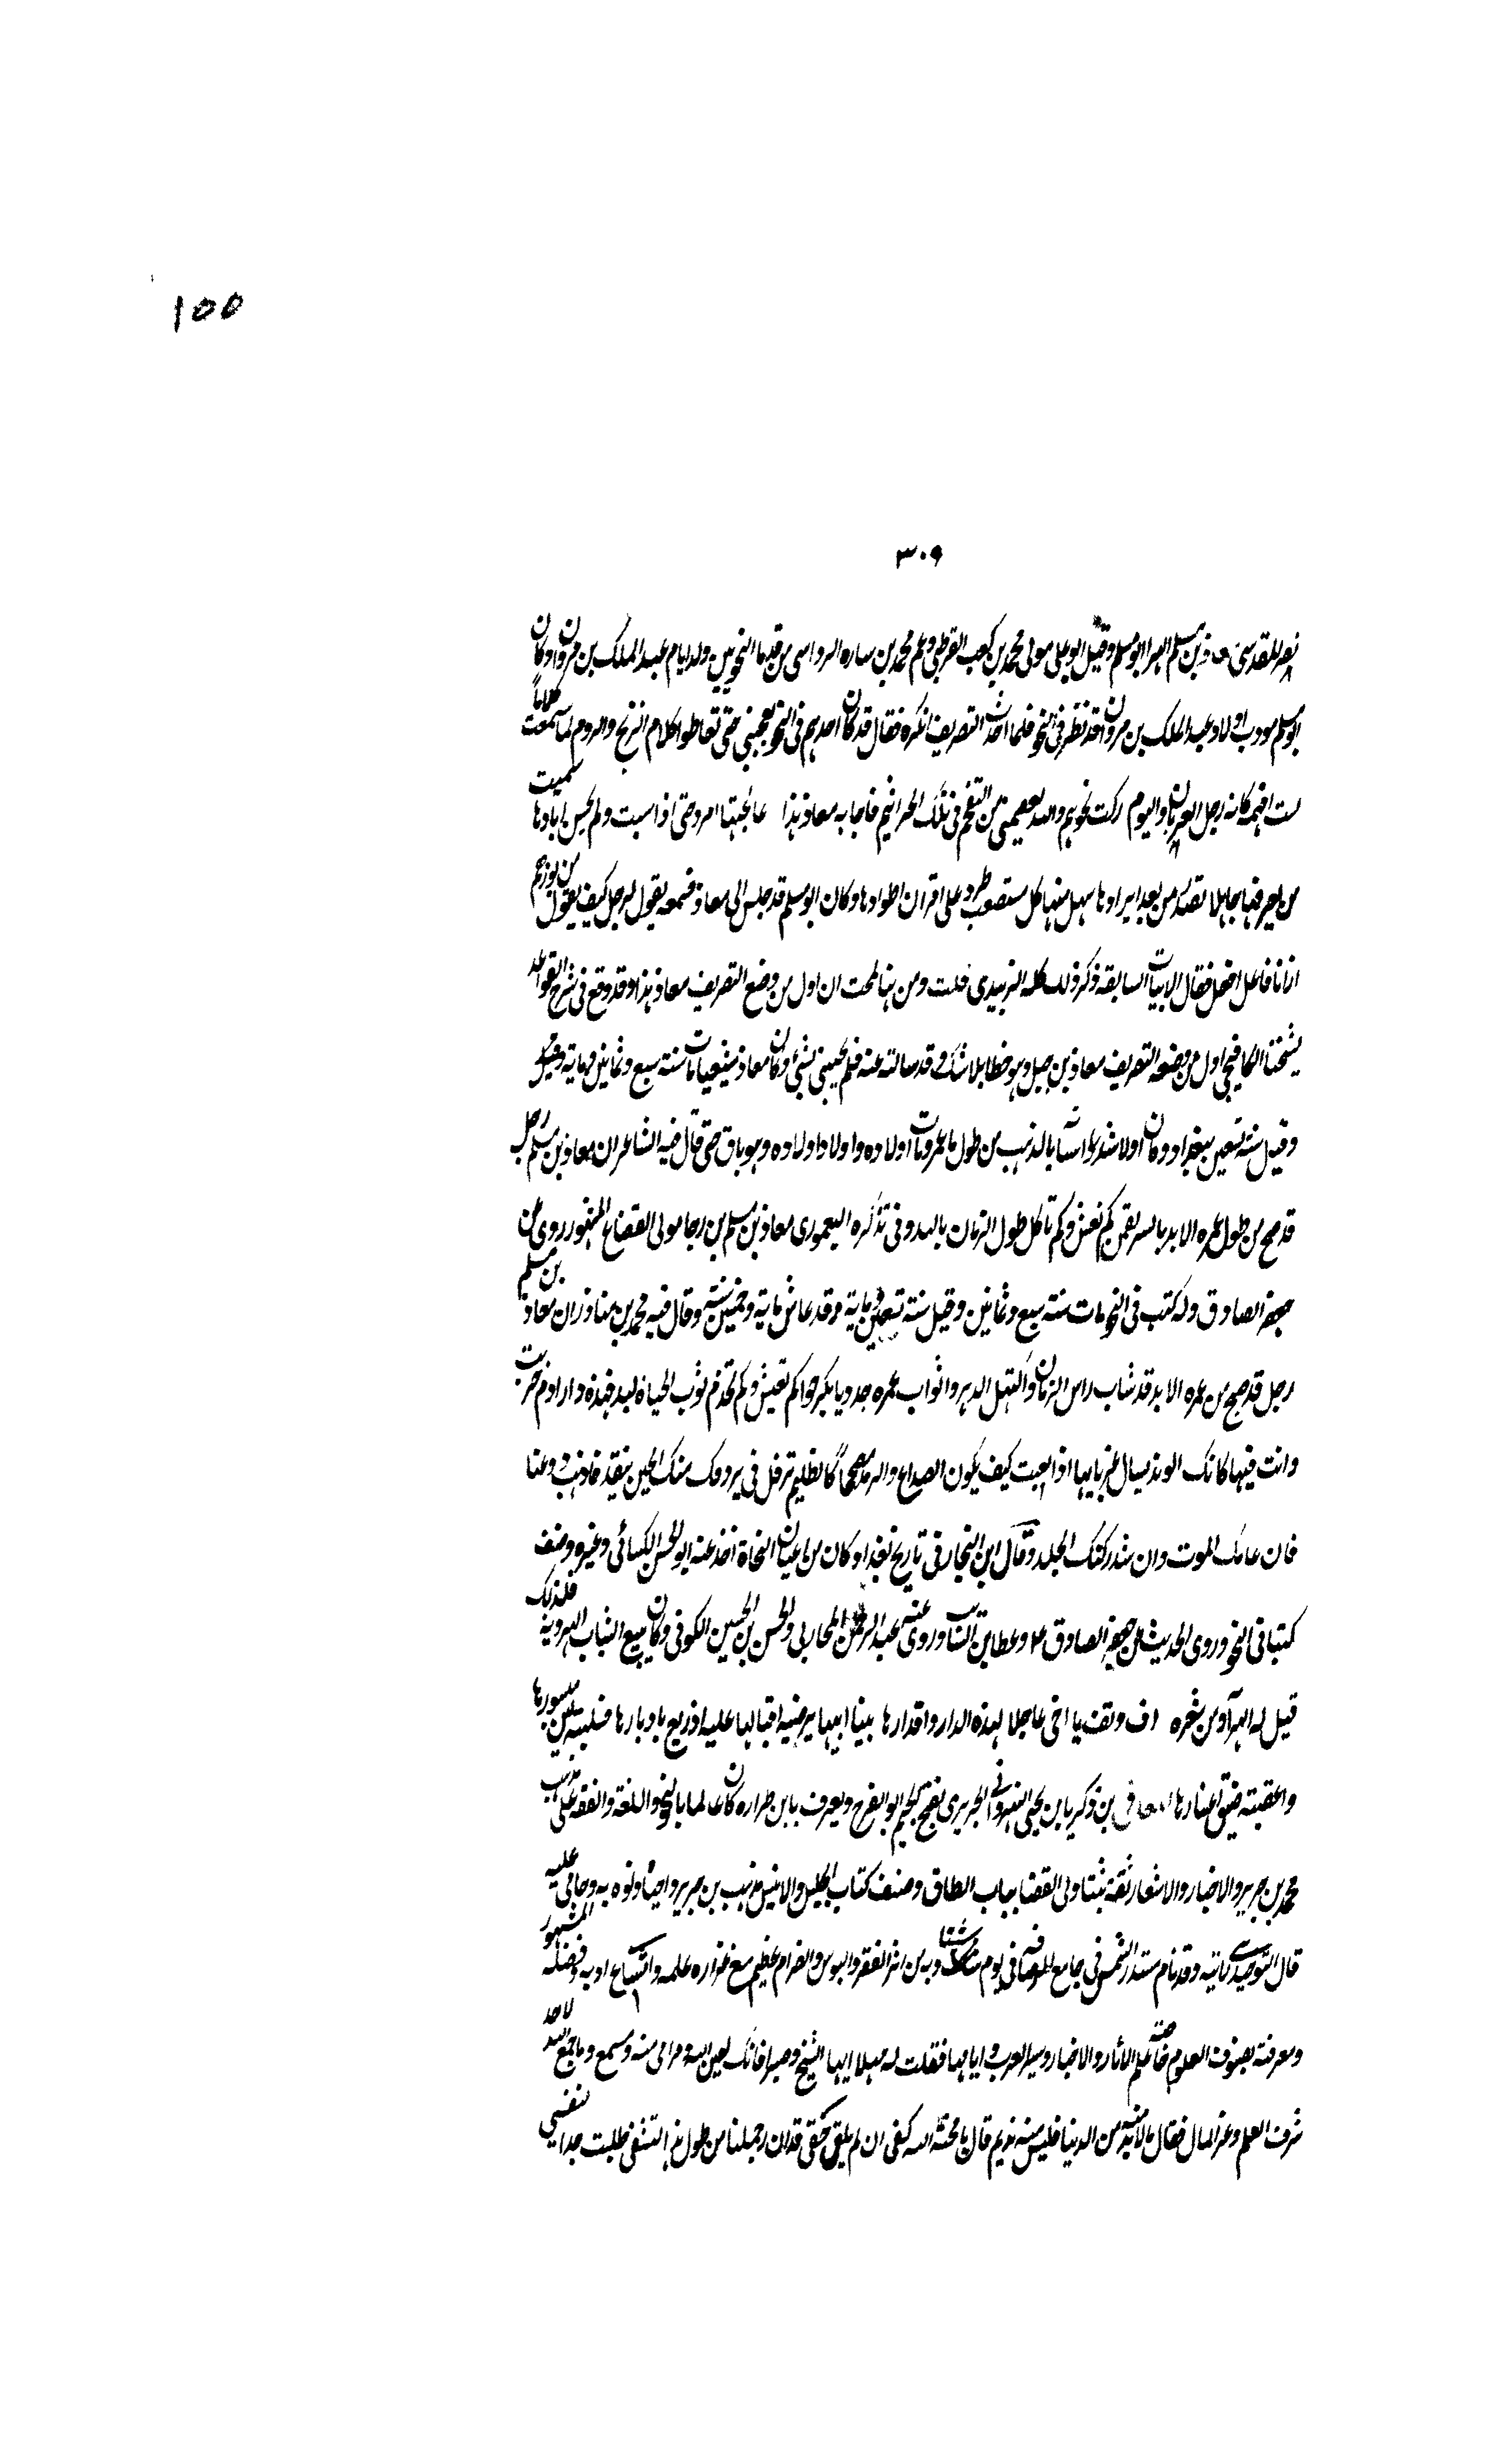 ١٥٥
٣٠٩
نصر المقدسى معاذ بن مسلم الهرا ابو مسلم وقيل ابو على مولى محمد بن كعب القرظى وعم محمد بن ساره الرواسى من قدما النحويين ولد ايام عبد الملك بن مروان وكان
ابو مسلم مودب اولاد عبد الملك بن مروان قد نظر فى النحو فلما احدث التصريف انكره فقال قد كان اخذهم فى النحو يعجبنى حتى تعاطوا كلام الزنج والروم لما سمعت كلاما
لست افهمه كانه زجل الغربان والبوم تركت نحوهم والله يعصمنى من التقحم فى تلك الجراثيم فاجابه معاذ هذا عالجتها امرد حتى اذا شبت ولم تحسن اباجادها سميت
من يعرفها جاهلا تصدر من بعد ايرادها سهل منها كل مستصعب طود على اقران اطوادها وكان ابو مسلم قد جلس الى معاذ فسمعه يقول لرجل كيف يقول من توزهم
ازا يا فاعل افعل فقال الابيات السابقة ذكر ذلك كله الزبيدى قلت ومن هنا لمحت ان اول من وضع التصريف معاذ هذا وقد وقع فى شرح القواعد
لشيخنا الكافيجى اول من وضعه التصريف معاذ بن جبل وهو خطا بلا شك وقد سالته عنه فلم يجبنى بشئ وكان معاذ شيعيا مات سنة سبع وثمانين وماية وقيل
وقيل سنة تسعين ببغداد وكان اولا شد اسنانه بالذهب من طول ما عمر ومات اولاده واولاد اولاده وهو باق حتى قال فيه الشاعر ان معاذ بن مسلم رجل
قد ضج من طول عمره الابد يا نسر لقمن كم تعيش وكم تاكل طول الزمان يا لبد وفى تذكره اليعمورى معاذ بن مسلم بن رجا مولى القعقاع المشهور روى عن
جعفر الصادق وله كتب فى النحو مات سنة سبع وثمانين وقيل سنة تسعين وماية وقد عاش ماية وخمسين سنة وقال فيه محمد بن مناذر ان معاذ بن مسلم
رجل قد ضج من عمره الابد قد شاب راس الزمان واكتهل الدهر واثواب عمره جدد يا بكر حوا كم تعيش وكم تخدم ثوب الحياة لبد فهذه دار ادم خربت
وانت فيها كانك الوتد يسال غربانها اذا نعبت كيف يكون الصداع والرمد مصححا كالظليم ترفل فى برودك منك الجبين يتقد فاذهب ودعنا
فان غايتك الموت وان شد ركنك الجلد وقال ابن النجار فى تاريخ بغداد كان من اعيان النحاة اخذ عنه ابو الحسن الكسائى وغيره وصنف
كتبا فى النحو وروى الحديث عن جعفر الصادق ع وعطا بن السائب وروى عنه عبد الرحمن المحاربى والحسن بن الحسين الكوفى وكان يبيع الثياب الهروية فلذلك
قيل له الهرآ ومن شعره اف وتف يا اخى عاجلا لهذه الدار واقدارها بينا ابنها يرضيه اقبالها عليه اذ ريع بادبارها فسلبته لين ميسورها
واعقبته ضيق اعسارها المعافى بن زكريا بن يحيى النهروانى الجريرى بفتح الجيم ابو الفرج ويعرف بابن طراره كان عالما بالنحو واللغة والفقه على مذهب
محمد بن جرير والاخبار والاشعار ثقة ثبتا ولى القضا بباب الطاق وصنف كتاب الجليس والانيس مذهب بن جرير واحياه ونوه به وحامى عليه
قال التوحيدى رايته وقد نام مستدبر الشمس فى جامع الرصافة فى يوم شات وبه من اثر الفقر والبوس والضرام عظيم مع غزاره علمه واتساع ادبه وفضله المشهور
ومعرفته بصنوف العلوم خاصة علم الاثار والاخبار وسير العرب وايامها فقلت له مهلا ايها الشيخ وصبرا فانك بعين الله ومراى منه ومسمع وما جمع الله لاحد
شرف العلم وعز المال فقال ما لابد منه من الدنيا فليس منه بد ثم قال يا محنة الله كفى ان لم تكفى فخفى قد ان رحملنا من طول هذا التشفى طلبت جدا لنفسى